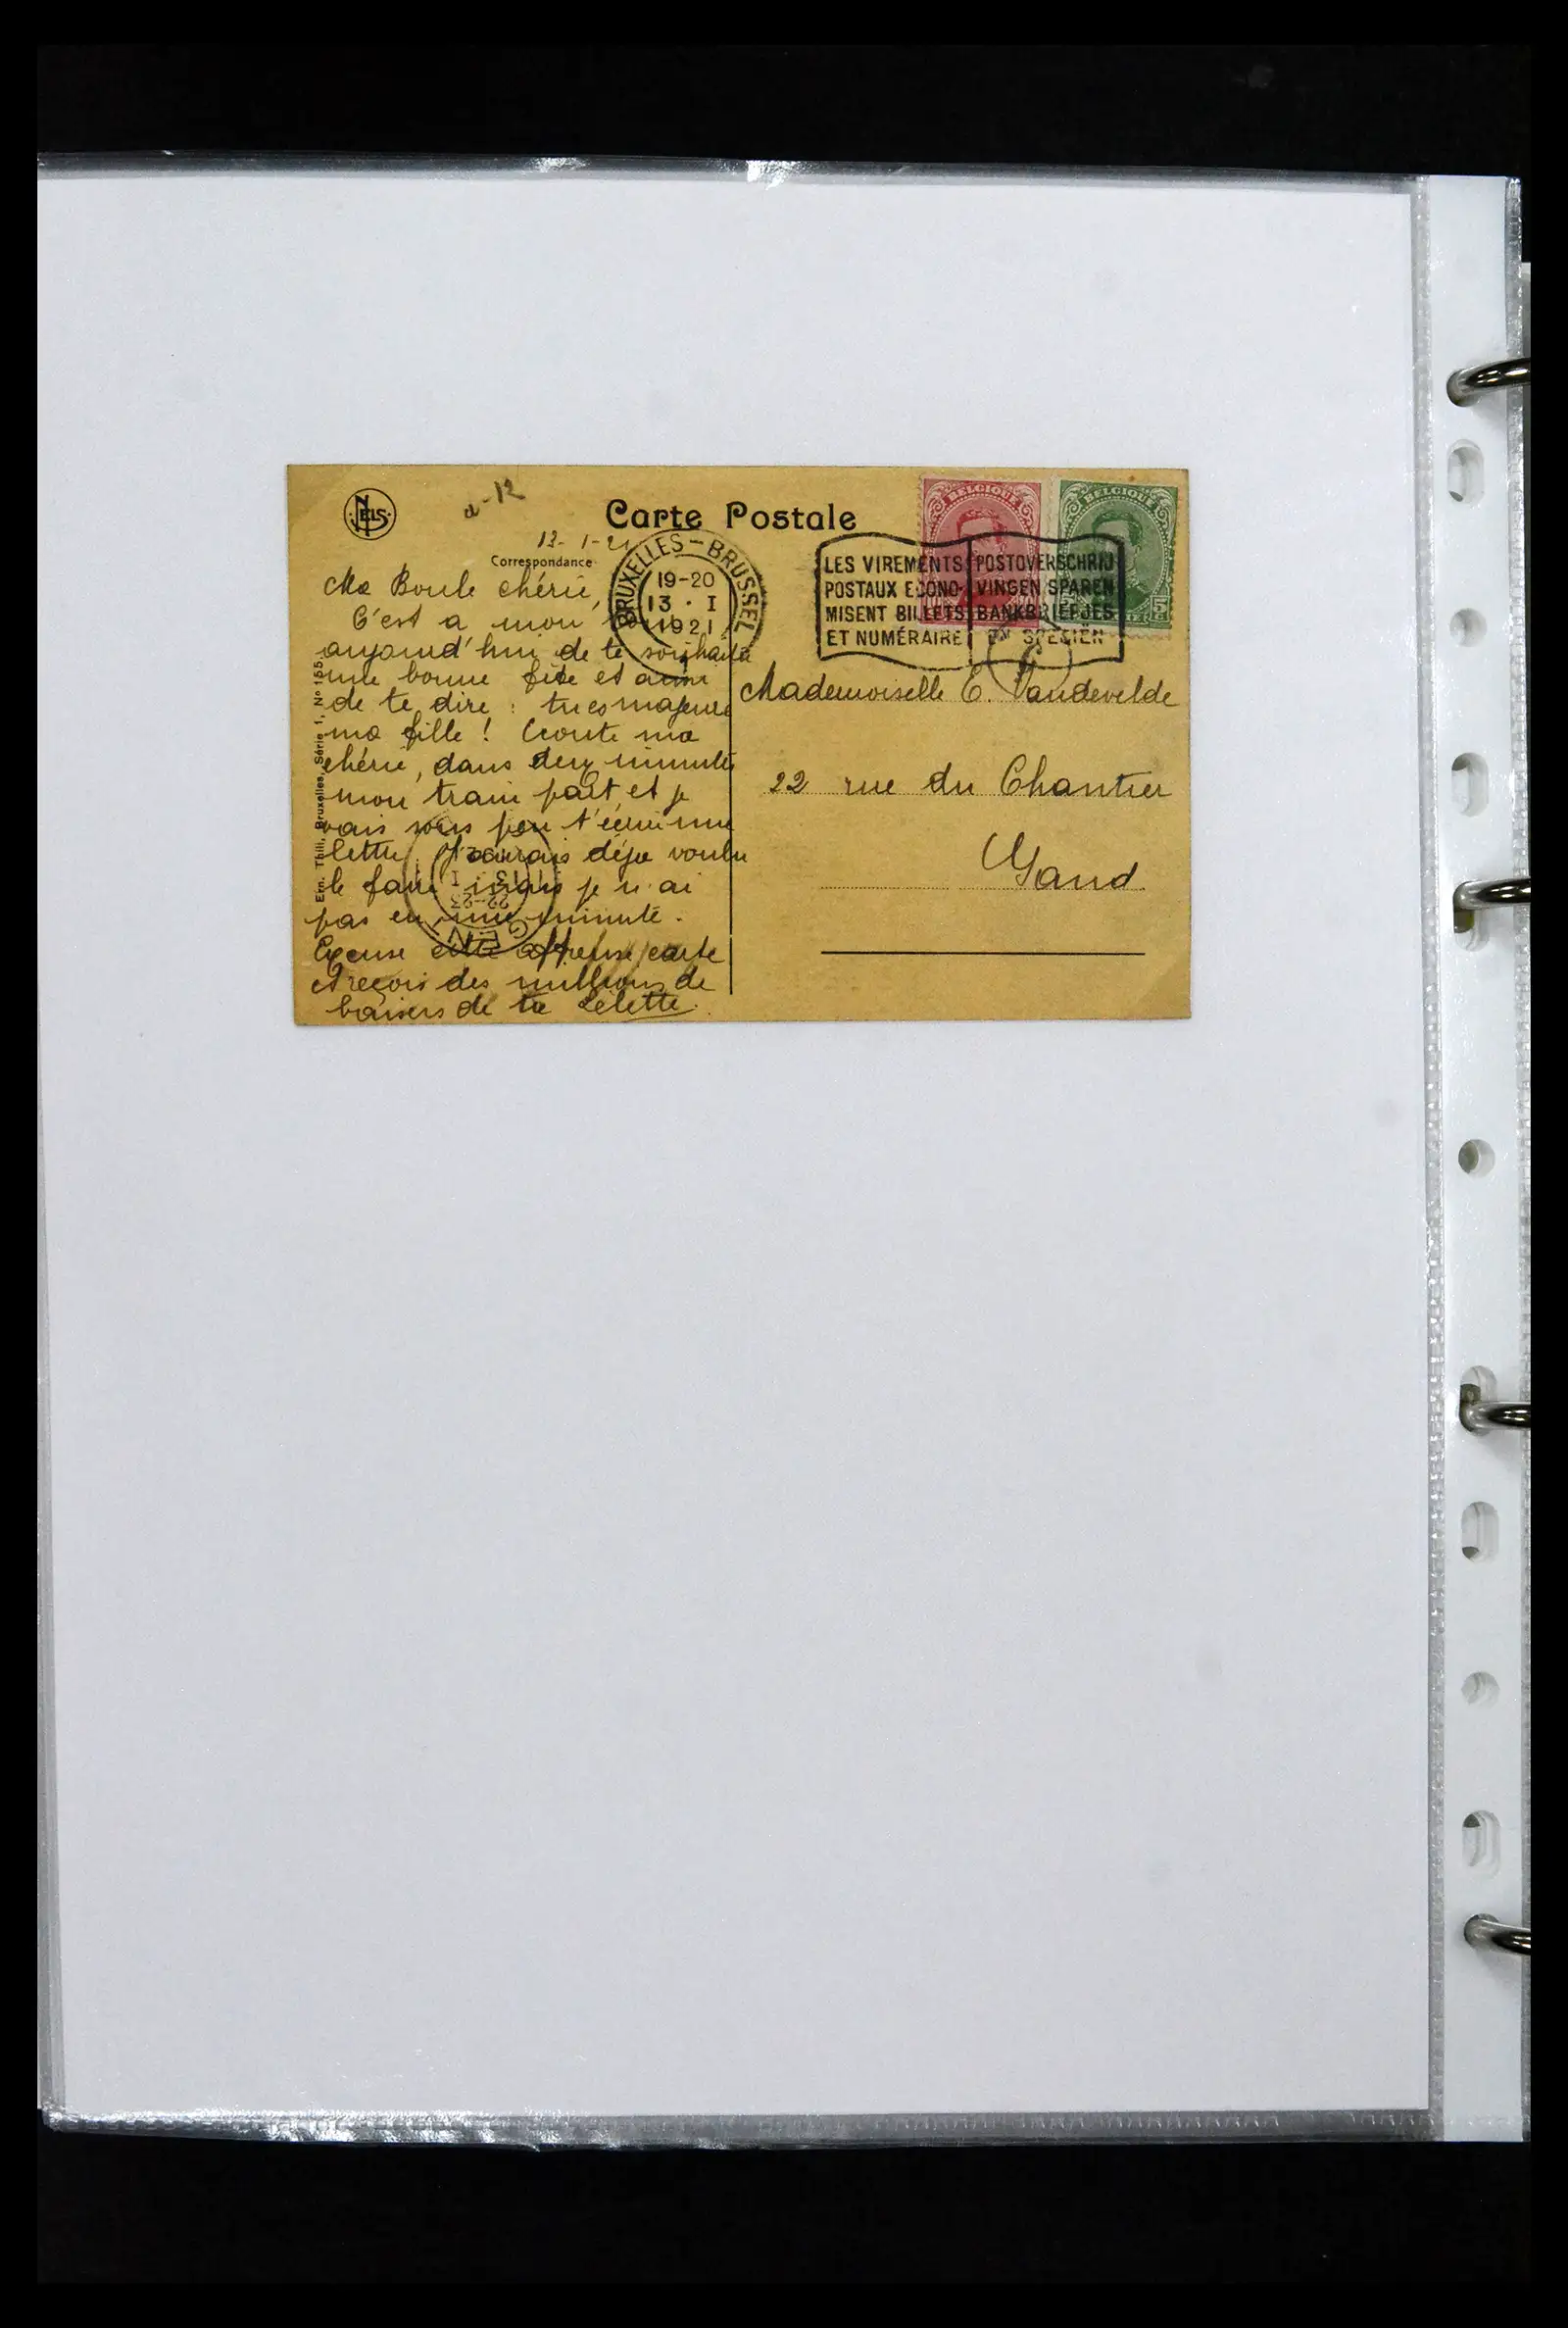 NELS
a-12
Carte Postale
13-1-21
Correspondance
Ma Boule chérie,
C'est a mon
aujourd'hui de te souhaiter
une bonne fête et aussi
de te dire : tu es majeure
ma fille ! Ecoute ma
chérie, dans deux minutes
mon train part, et je
vais sous peu t'écrire une
lettre. J'aurais déja voulu
le faire mais je n'ai
pas eu une minute.
Excuse cette affreuse carte
et reçois des millions de
baisers de ta Lelette.
Em. Thill, Bruxelles, Série 1, No 155
BRUXELLES-BRUSSEL
19-20
13 · I
1921
LES VIREMENTS
POSTAUX ECONO-
MISENT BILLETS
ET NUMÉRAIRE
POSTOVERSCHRIJ
VINGEN SPAREN
BANKBRIEFJES
EN SPECIËN
BELGIQUE
BELGIQUE
Mademoiselle E. Vandevelde
22 rue du Chantier
Gand
GENT
13 I
22-23